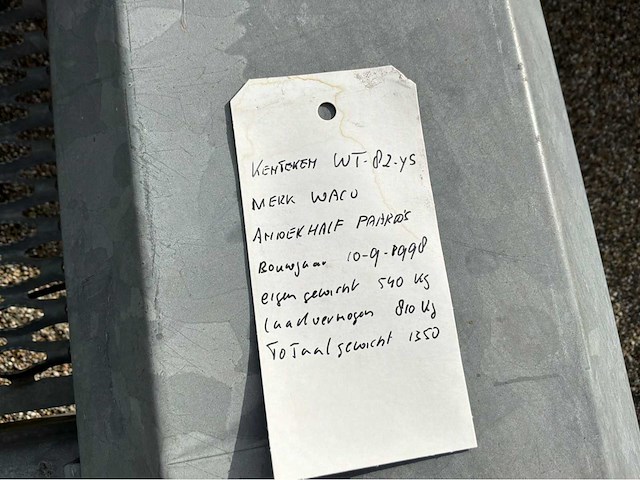 Kenteken WT-82-YS
MERK WACO
ANDERHALF PAARDS
Bouwjaar 10-9-1998
eigen gewicht 540 kg
laadvermogen 810 kg
ToTaal gewicht 1350